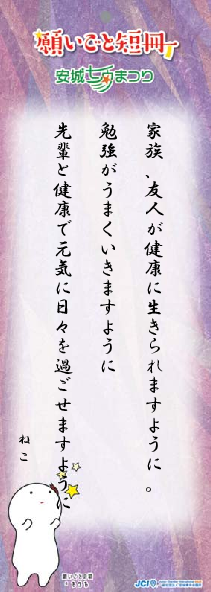 願いごと短冊
安城七夕まつり
家族、友人が健康に生きられますように。
勉強がうまくいきますように
先輩と健康で元気に日々を過ごせますように
ねこ
願いごと短冊
JCI